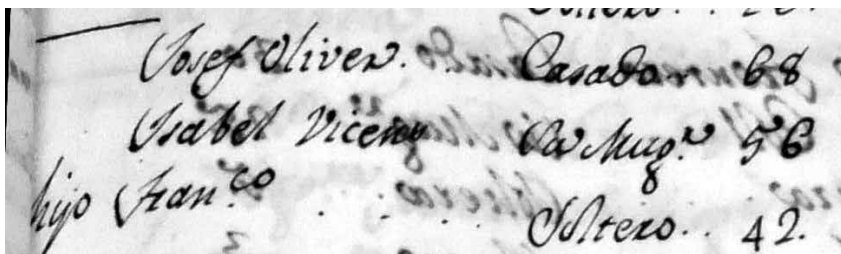 Josef Oliver. Casado 68
Isabel Vicens Su Mug.r 56
hijo Fran.co . . . Soltero . . 42.